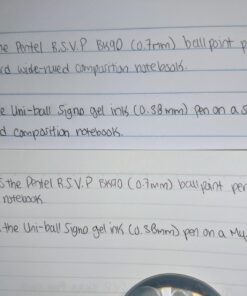 he Pentel R.S.V.P BK90 (0.7mm) ballpoint p
rd wide-ruled composition notebooks.
e Uni-ball Signo gel ink (0.38mm) pen on a s
d composition notebook.
s the Pentel R.S.V.P BK90 (0.7mm) ballpoint pen
notebook
the Uni-ball Signo gel ink (0.38mm) pen on a Mu